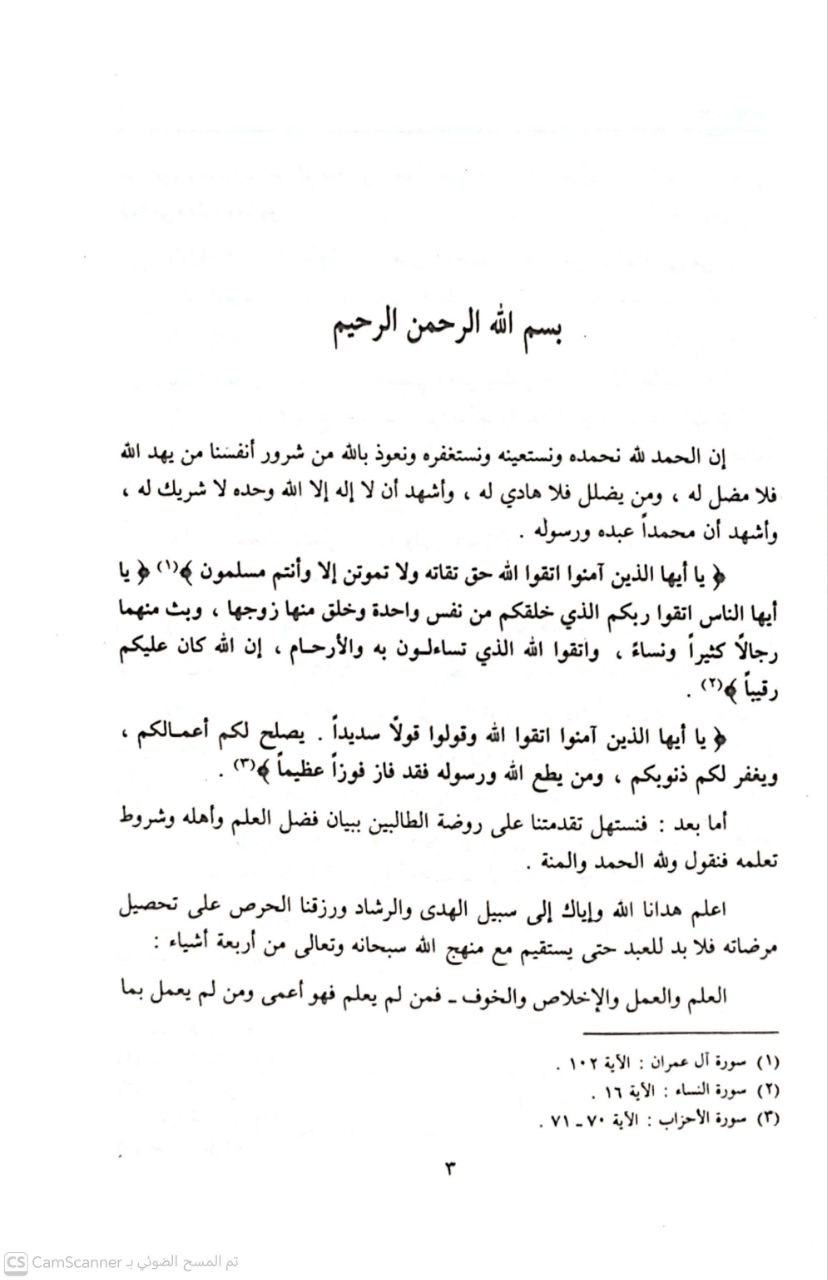 بسم الله الرحمن الرحيم
إن الحمد لله نحمده ونستعينه ونستغفره ونعوذ بالله من شرور أنفسنا من يهد الله
فلا مضل له ، ومن يضلل فلا هادي له ، وأشهد أن لا إله إلا الله وحده لا شريك له ،
وأشهد أن محمداً عبده ورسوله .
﴿ يا أيها الذين آمنوا اتقوا الله حق تقاته ولا تموتن إلا وأنتم مسلمون ﴾(١) ﴿ يا
أيها الناس اتقوا ربكم الذي خلقكم من نفس واحدة وخلق منها زوجها ، وبث منهما
رجالاً كثيراً ونساءً ، واتقوا الله الذي تساءلـون به والأرحـام ، إن الله كان عليكم
رقيباً ﴾(٢) .
﴿ يا أيها الذين آمنوا اتقوا الله وقولوا قولاً سديداً . يصلح لكم أعمـالكم ،
ويغفر لكم ذنوبكم ، ومن يطع الله ورسوله فقد فاز فوزاً عظيماً ﴾(٣) .
أما بعد : فنستهل تقدمتنا على روضة الطالبين ببيان فضل العلم وأهله وشروط
تعلمه فنقول ولله الحمد والمنة .
اعلم هدانا الله وإياك إلى سبيل الهدى والرشاد ورزقنا الحرص على تحصيل
مرضاته فلا بد للعبد حتى يستقيم مع منهج الله سبحانه وتعالى من أربعة أشياء :
العلم والعمل والإخلاص والخوف ـ فمن لم يعلم فهو أعمى ومن لم يعمل بما
(١) سورة آل عمران : الآية ١٠٢ .
(٢) سورة النساء : الآية ١٦ .
(٣) سورة الأحزاب : الآية ٧٠ ـ ٧١ .
٣
CS CamScanner تم المسح الضوئي بـ